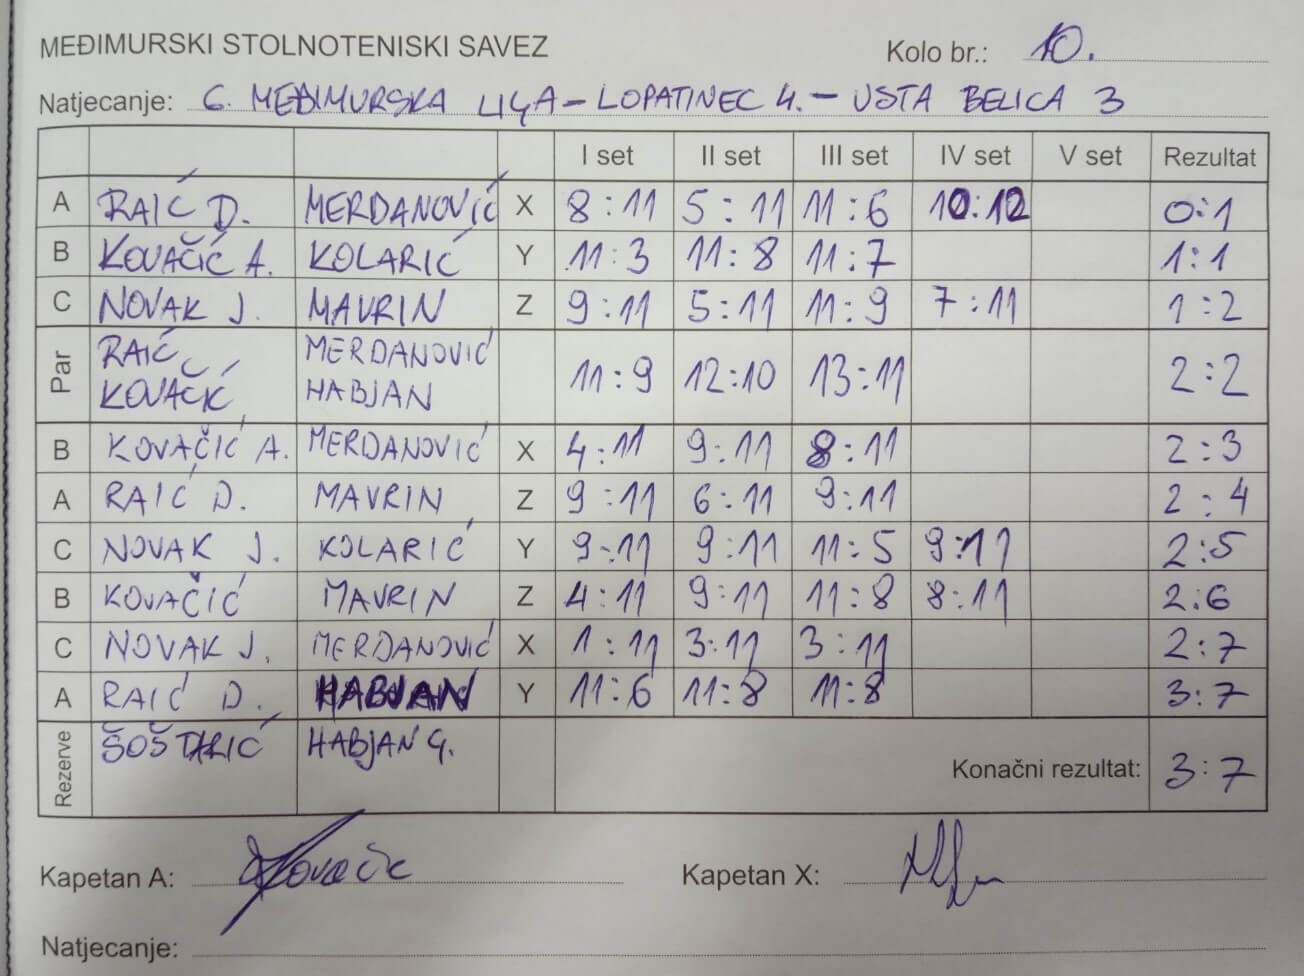 MEĐIMURSKI STOLNOTENISKI SAVEZ Kolo br.: 10.
Natjecanje: 6. MEĐIMURSKA LIGA – LOPATINEC 4. – USTA BELICA 3
I set II set III set IV set V set Rezultat
A RAIĆ D. MERDANOVIĆ X 8:11 5:11 11:6 10:12 0:1
B KOVAČIĆ A. KOLARIĆ Y 11:3 11:8 11:7 1:1
C NOVAK J. MAVRIN Z 9:11 5:11 11:9 7:11 1:2
Par RAIĆ MERDANOVIĆ
KOVAČIĆ HABJAN 11:9 12:10 13:11 2:2
B KOVAČIĆ A. MERDANOVIĆ X 4:11 9:11 8:11 2:3
A RAIĆ D. MAVRIN Z 9:11 6:11 9:11 2:4
C NOVAK J. KOLARIĆ Y 9:11 9:11 11:5 9:11 2:5
B KOVAČIĆ MAVRIN Z 4:11 9:11 11:8 8:11 2:6
C NOVAK J. MERDANOVIĆ X 1:11 3:11 3:11 2:7
A RAIĆ D. HABJAN Y 11:6 11:8 11:8 3:7
Rezerve ŠOŠTARIĆ HABJAN G.
Konačni rezultat: 3:7
Kapetan A: Kovačić Kapetan X:
Natjecanje: